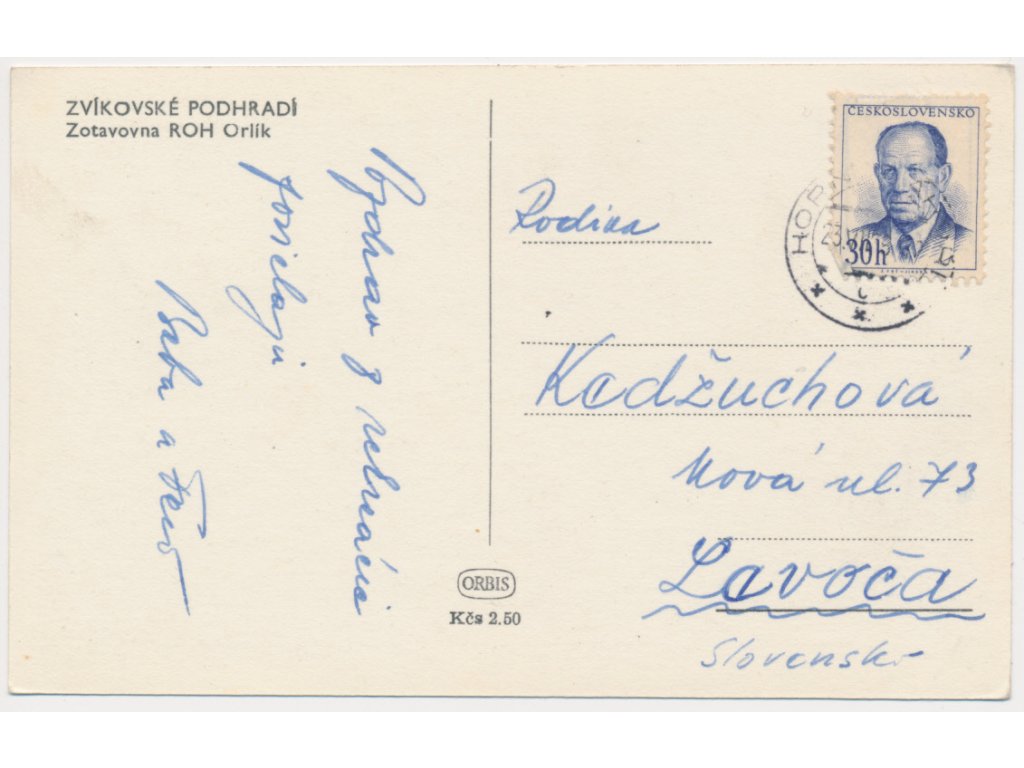 ZVÍKOVSKÉ PODHRADÍ
Zotavovna ROH Orlík
Pozdrav z rekreácie
posielajú
Beba a Fero
ORBIS
Kčs 2.50
ČESKOSLOVENSKO
30h
Rodina
Kedžuchová
Nová ul. 73
Levoča
Slovensko